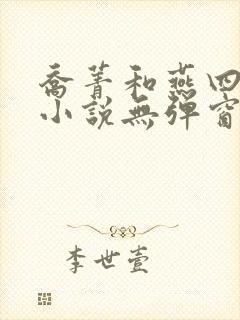 喬菁和燕四
小說無彈窗
李世壹